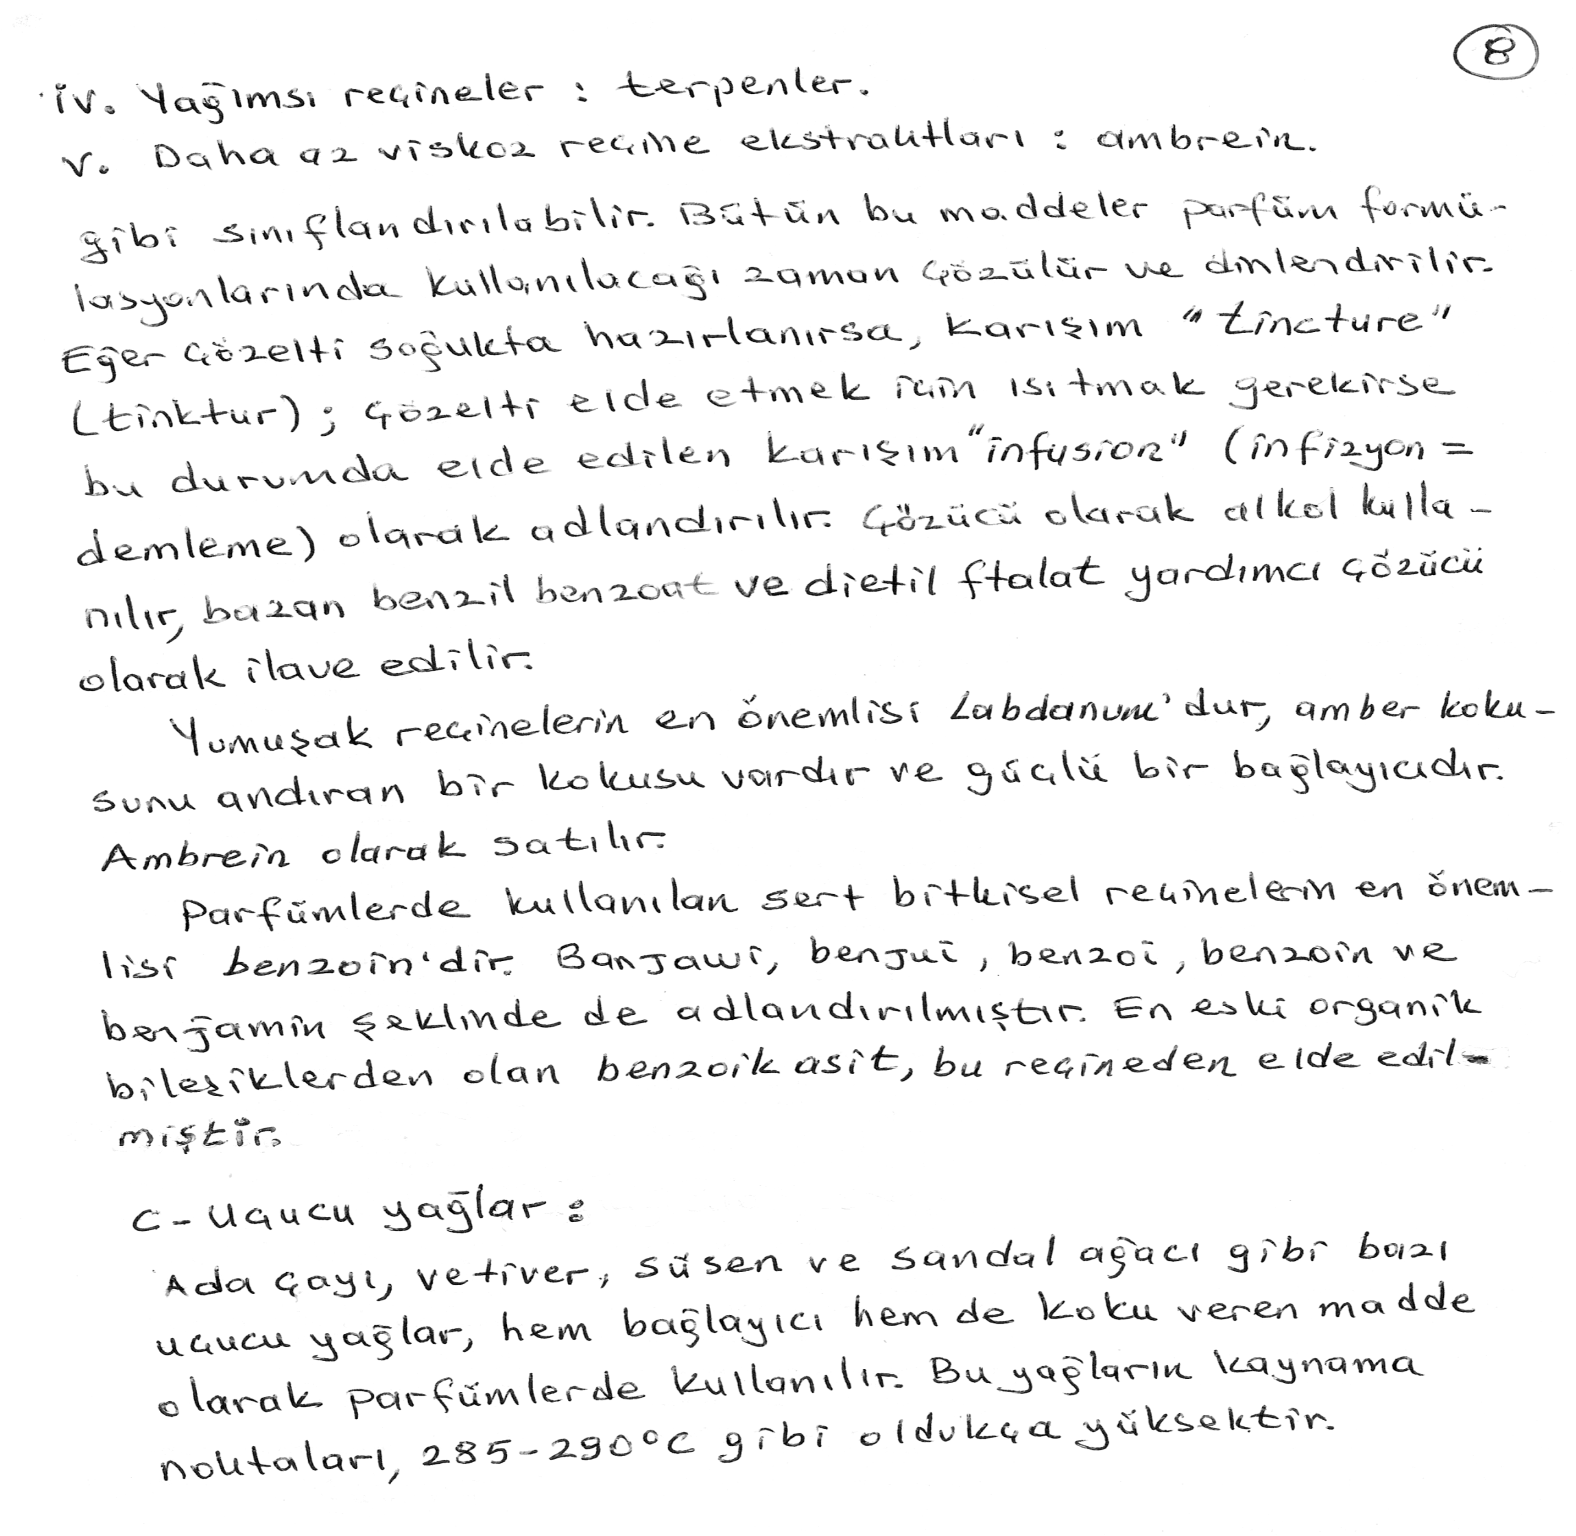 8
iv. Yağımsı reçineler : terpenler.
v. Daha az viskoz reçine ekstraktları : ambrein.
gibi sınıflandırılabilir. Bütün bu maddeler parfüm formü-
lasyonlarında kullanılacağı zaman çözülür ve dinlendirilir.
Eğer çözelti soğukta hazırlanırsa, karışım "tincture"
(tinktur) ; çözelti elde etmek için ısıtmak gerekirse
bu durumda elde edilen karışım "infusion" (infizyon =
demleme) olarak adlandırılır. Çözücü olarak alkol kulla-
nılır, bazan benzil benzoat ve dietil ftalat yardımcı çözücü
olarak ilave edilir.
Yumuşak reçinelerin en önemlisi Labdanum'dur, amber koku-
sunu andıran bir kokusu vardır ve güçlü bir bağlayıcıdır.
Ambrein olarak satılır.
Parfümlerde kullanılan sert bitkisel reçinelerin en önem-
lisi benzoin'dir. Banjawi, benjui, benzoi, benzoin ve
benjamin şeklinde de adlandırılmıştır. En eski organik
bileşiklerden olan benzoik asit, bu reçineden elde edil-
miştir.
C- Uçucu yağlar :
Ada çayı, vetiver, süsen ve sandal ağacı gibi bazı
uçucu yağlar, hem bağlayıcı hem de koku veren madde
olarak parfümlerde kullanılır. Bu yağların kaynama
noktaları, 285-290°C gibi oldukça yüksektir.